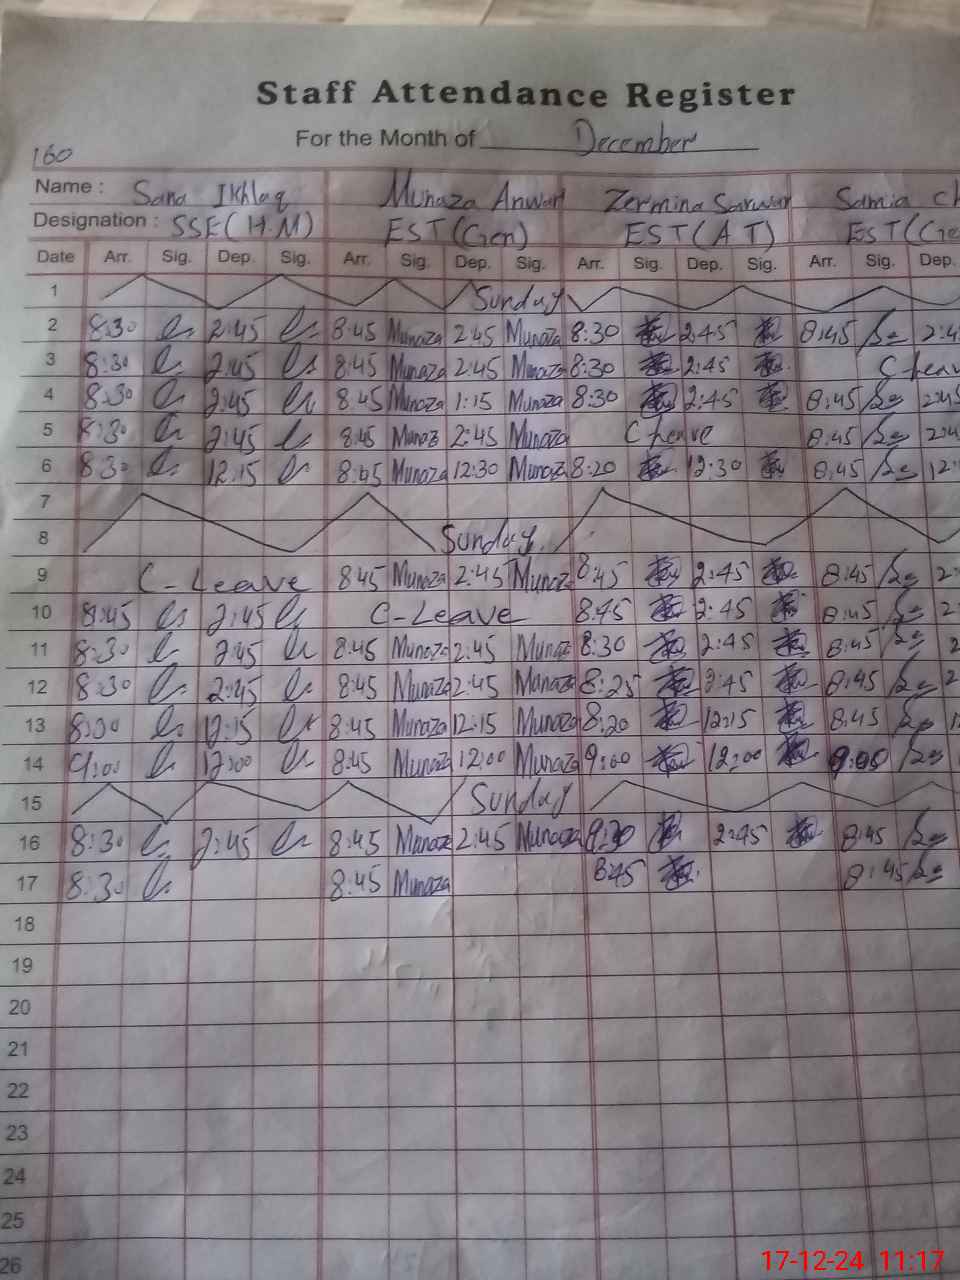 Staff Attendance Register
For the Month of December
160
Name : Sana Ikhlaq Munaza Anwar Zermina Sarwar Samia Ch
Designation : SSE(H.M) EST(Gen) EST(AT) EST(Ge
Date Arr. Sig. Dep. Sig. Arr. Sig. Dep. Sig. Arr. Sig. Dep. Sig. Arr. Sig. Dep.
1 Sunday
2 8:30 2:45 8:45 Munaza 2:45 Munaza 8:30 2:45 8:45 2:4
3 8:30 2:45 8:45 Munaza 2:45 Munaza 8:30 2:45 C leav
4 8:30 2:45 8:45 Munaza 1:15 Munaza 8:30 2:45 8:45 2:45
5 8:30 2:45 8:45 Munaz 2:45 Munaza C leave 8:45 2:4
6 8:30 12:15 8:45 Munaza 12:30 Munaza 8:20 12:30 8:45 12:
7
8 Sunday
9 C-Leave 8:45 Munaza 2:45 Munaza 8:45 2:45 8:45 2:
10 8:45 2:45 C-Leave 8:45 2:45 8:45 2
11 8:30 2:45 8:45 Munaza 2:45 Munaza 8:30 2:45 8:45 2
12 8:30 2:45 8:45 Munaza 2:45 Munaza 8:25 2:45 8:45 2
13 8:30 12:15 8:45 Munaza 12:15 Munaza 8:20 12:15 8:45 1
14 9:00 12:00 8:45 Munaza 12:00 Munaza 9:00 12:00 9:00
15 Sunday
16 8:30 2:45 8:45 Munaza 2:45 Munaza 2:45 8:45
17 8:30 8:45 Munaza 8:45 8:45
18
19
20
21
22
23
24
25
26
17-12-24 11:17